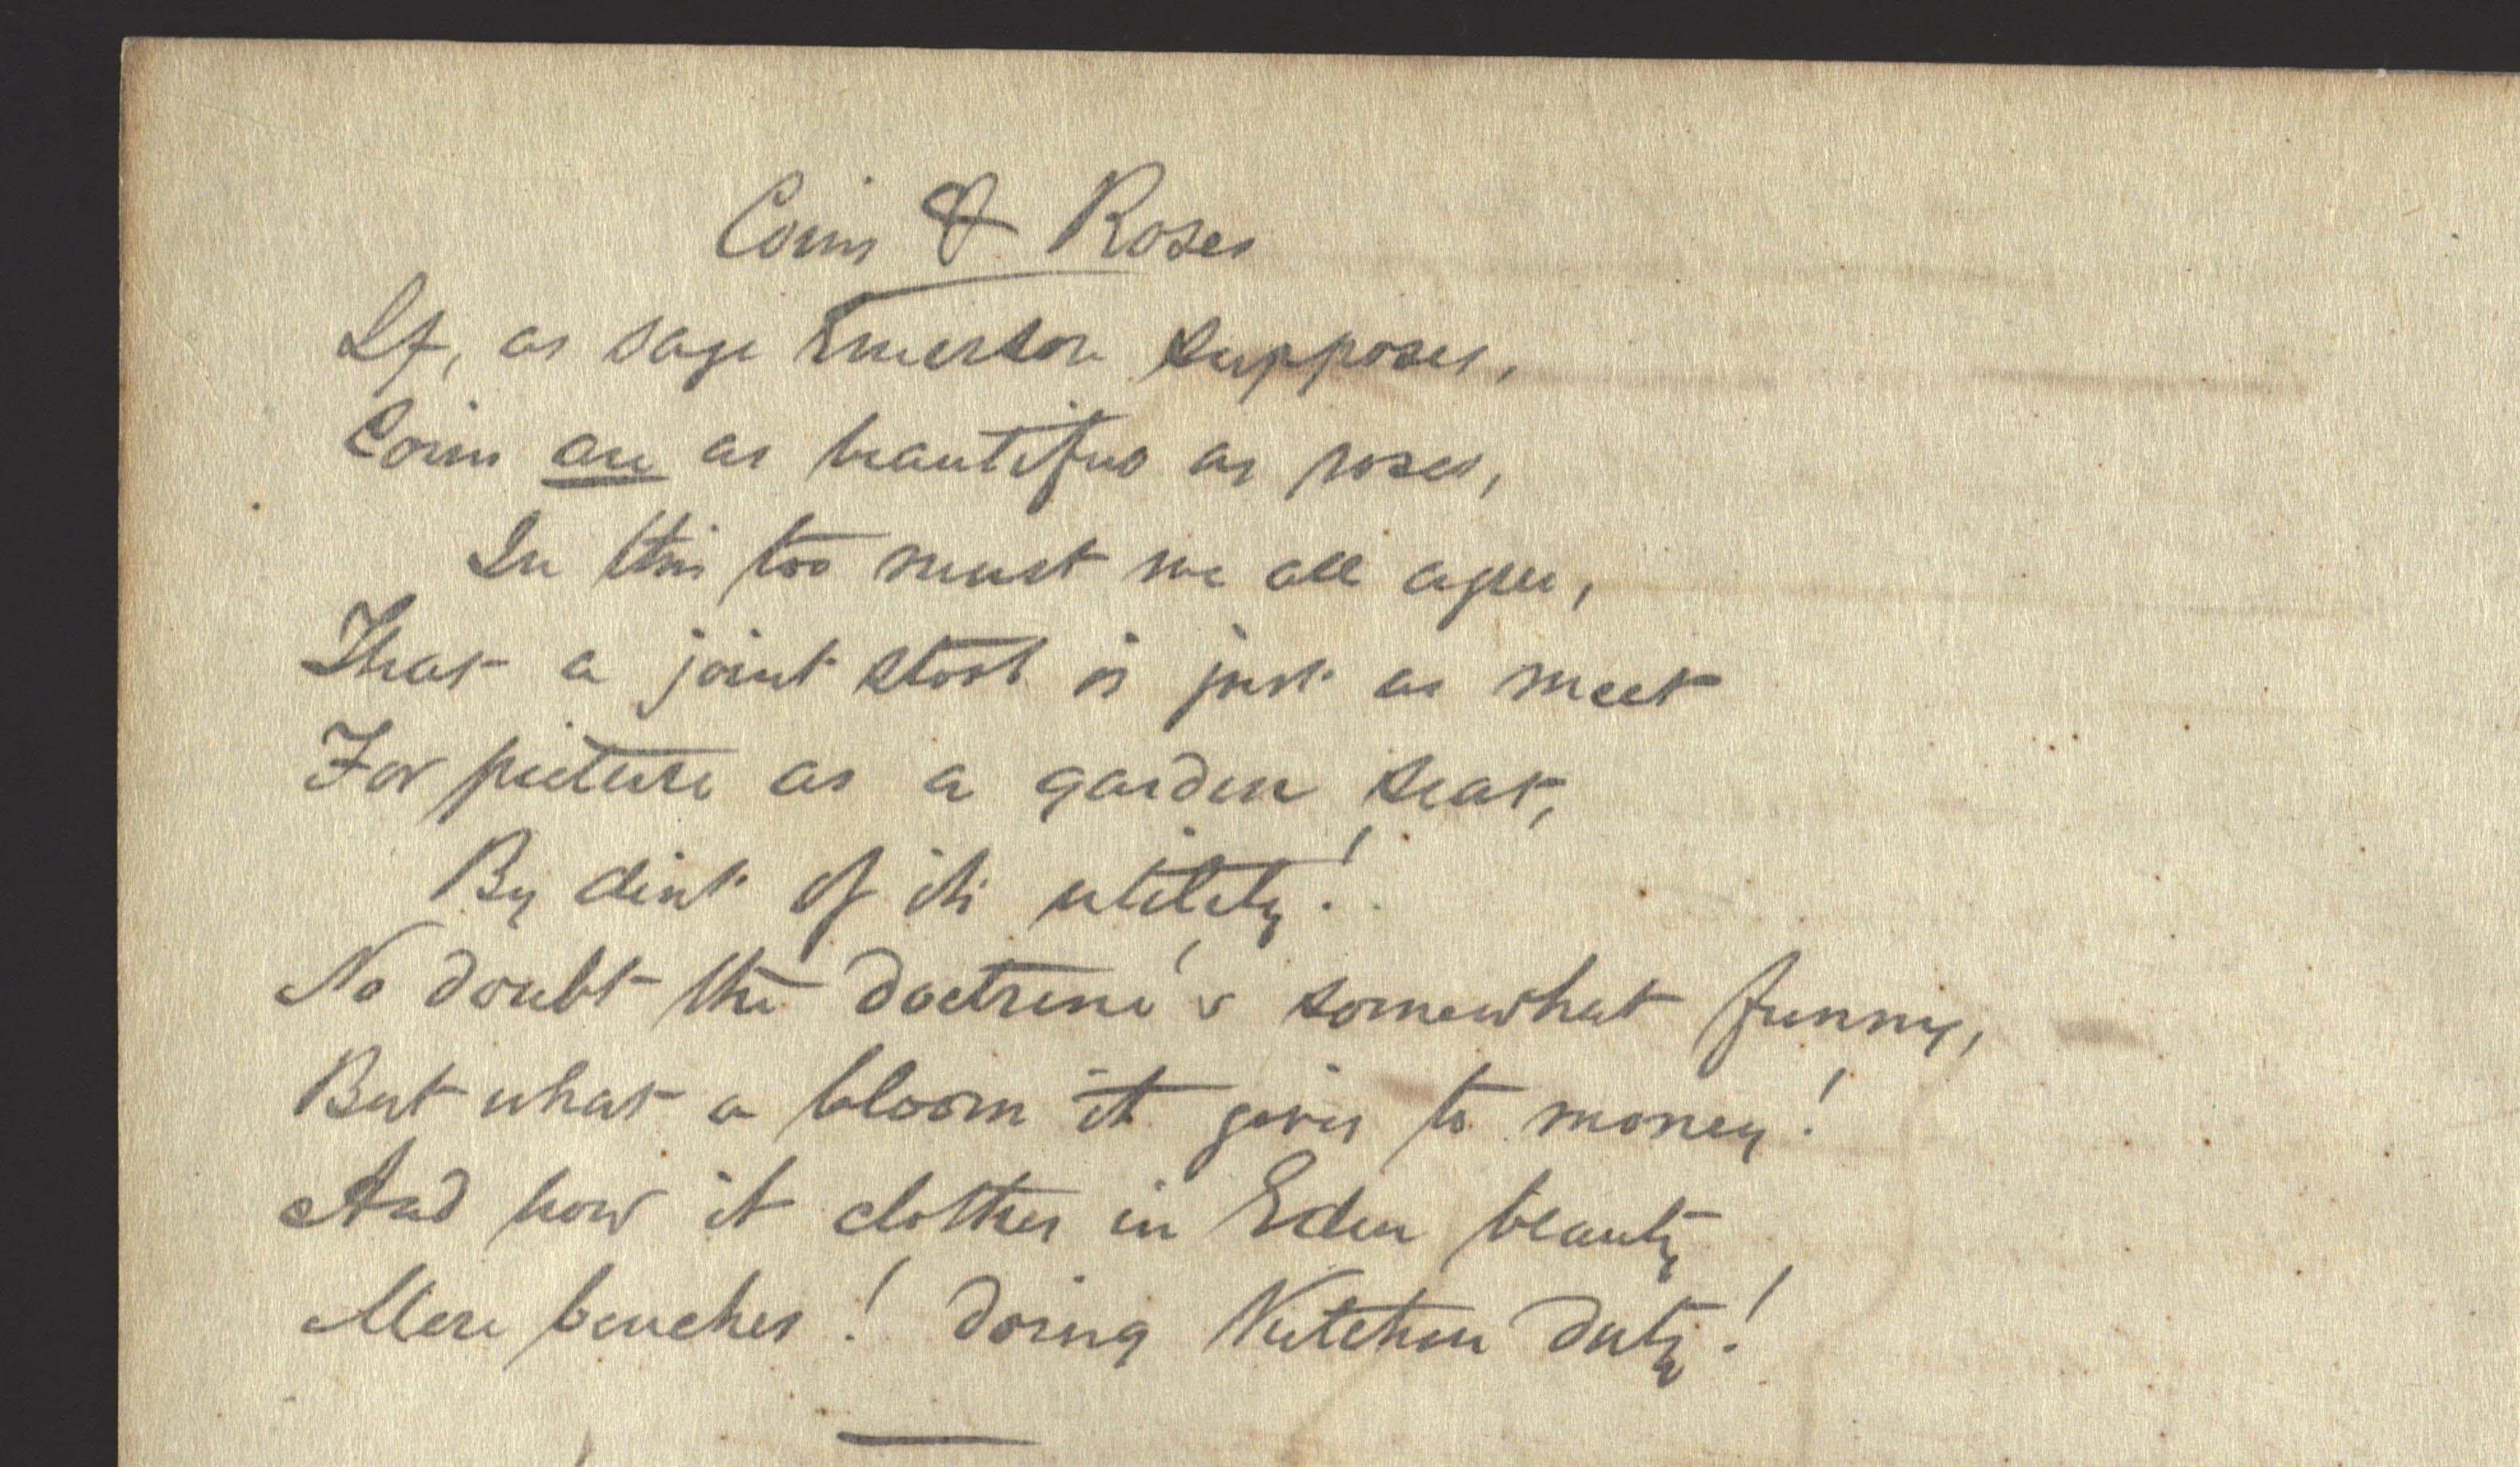 Coins & Roses
If, as sage Emerson supposes,
Coins are as beautiful as roses,
In this too must we all agree,
That a joint stool is just as meet
For picture as a garden seat,
By dint of its utility!
No doubt the doctrine's somewhat funny,
But what a bloom it gives to money!
And how it clothes in Eden beauty
Mere benches! doing Kitchen duty!